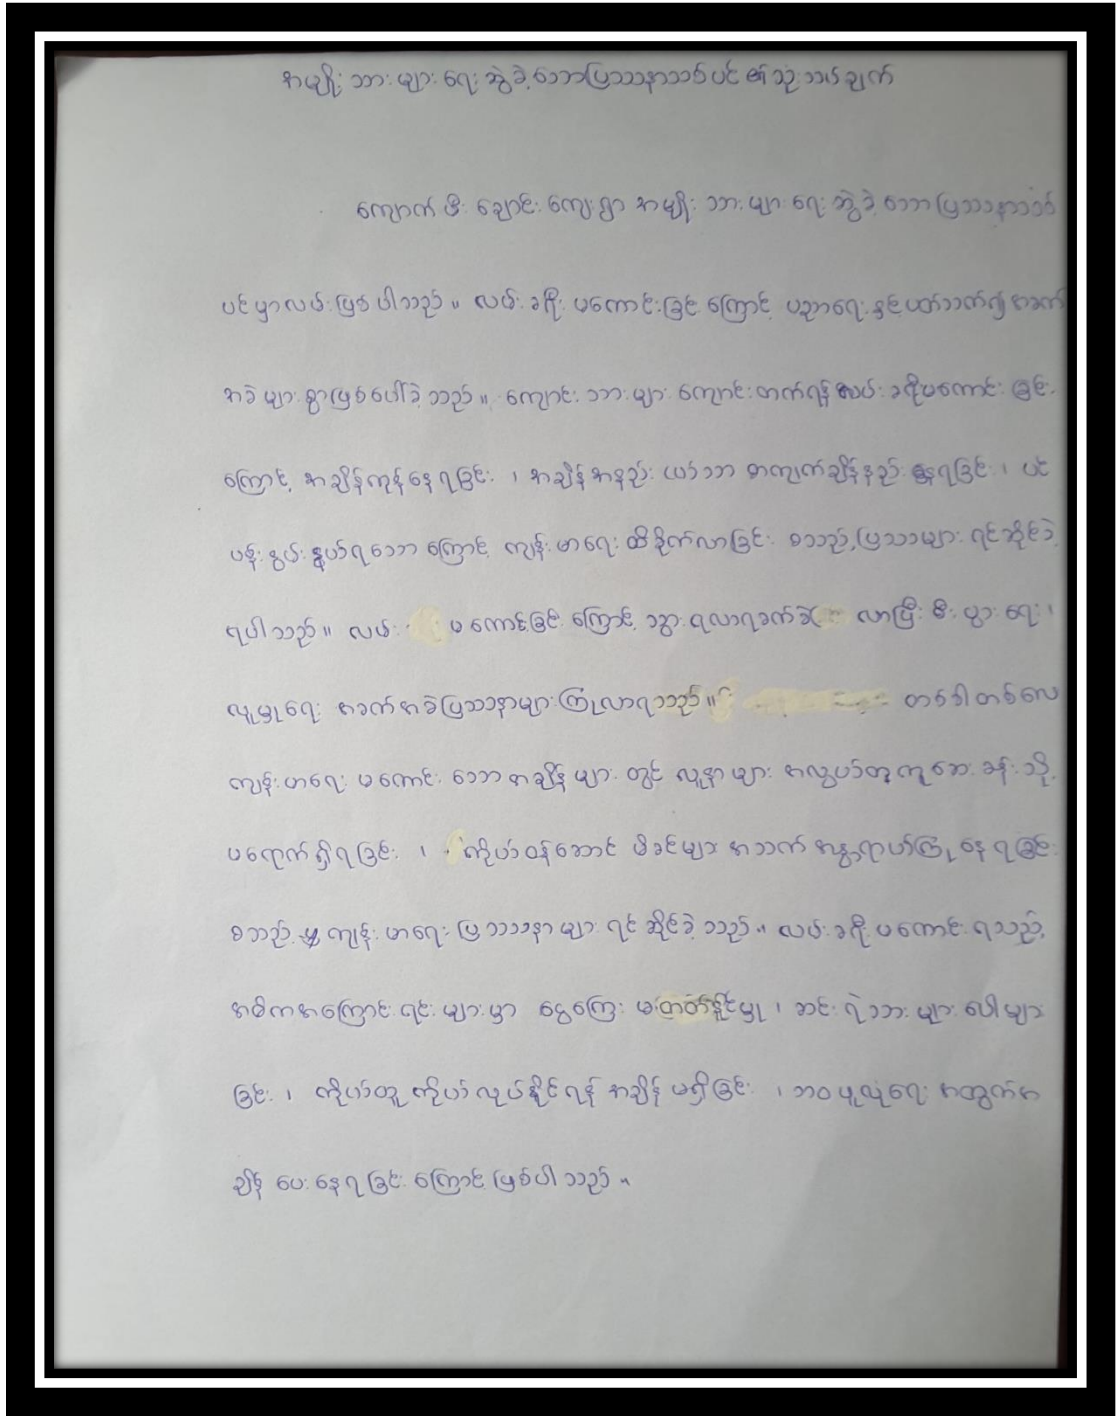 အမျိုးသားများရေးဆွဲခဲ့သောပြဿနာသစ်ပင်၏သုံးသပ်ချက်
ကျောက်ဖီးချောင်းကျေးရွာ အမျိုးသားများရေးဆွဲခဲ့သောပြဿနာသစ်
ပင်မှာလမ်းဖြစ်ပါသည်။ လမ်းခရီးမကောင်းခြင်းကြောင့် ပညာရေးနှင့်ပတ်သက်၍အခက်
အခဲများစွာဖြစ်ပေါ်ခဲ့သည်။ ကျောင်းသားများကျောင်းတက်ရန်လမ်းခရီးမကောင်းခြင်း
ကြောင့် အချိန်ကုန်နေရခြင်း၊ အချိန်အနည်းယယ်သာ စာကျက်ချိန်နည်းနေရခြင်း၊ ပင်
ပန်းနွမ်းနွယ်ရသောကြောင့် ကျန်းမာရေးထိခိုက်လာခြင်း စသည့်ပြသာများရင်ဆိုင်ခဲ့
ရပါသည်။ လမ်း မကောင်ခြင်းကြောင့် သွားရလာရခက်ခဲ လာပြီးစီးပွားရေး၊
လူမှုရေး အခက်အခဲပြဿနာများကြုံလာရသည်။ တစ်ခါတစ်လေ
ကျန်းမာရေးမကောင်းသောအချိန်များတွင် လူနာများအလွယ်တကူဆေးခန်းသို့
မရောက်ရှိရခြင်း၊ ကိုယ်ဝန်ဆောင်မိခင်များအသက်အန္တရာယ်ကြုံနေရခြင်း
စသည့်ကျန်းမာရေးပြဿနာများရင်ဆိုင်ခဲ့သည်။ လမ်းခရီးမကောင်းရသည့်
အဓိကအကြောင်းရင်းများမှာ ငွေကြေးမတတ်နိုင်မှု၊ ဆင်းရဲသားများပေါများ
ခြင်း၊ ကိုယ်ထူကိုယ်လုပ်နိုင်ရန်အချိန်မရှိခြင်း၊ ဘဝဖူလုံရေးအတွက်အ
ချိန်ပေးနေရခြင်းကြောင့်ဖြစ်ပါသည်။